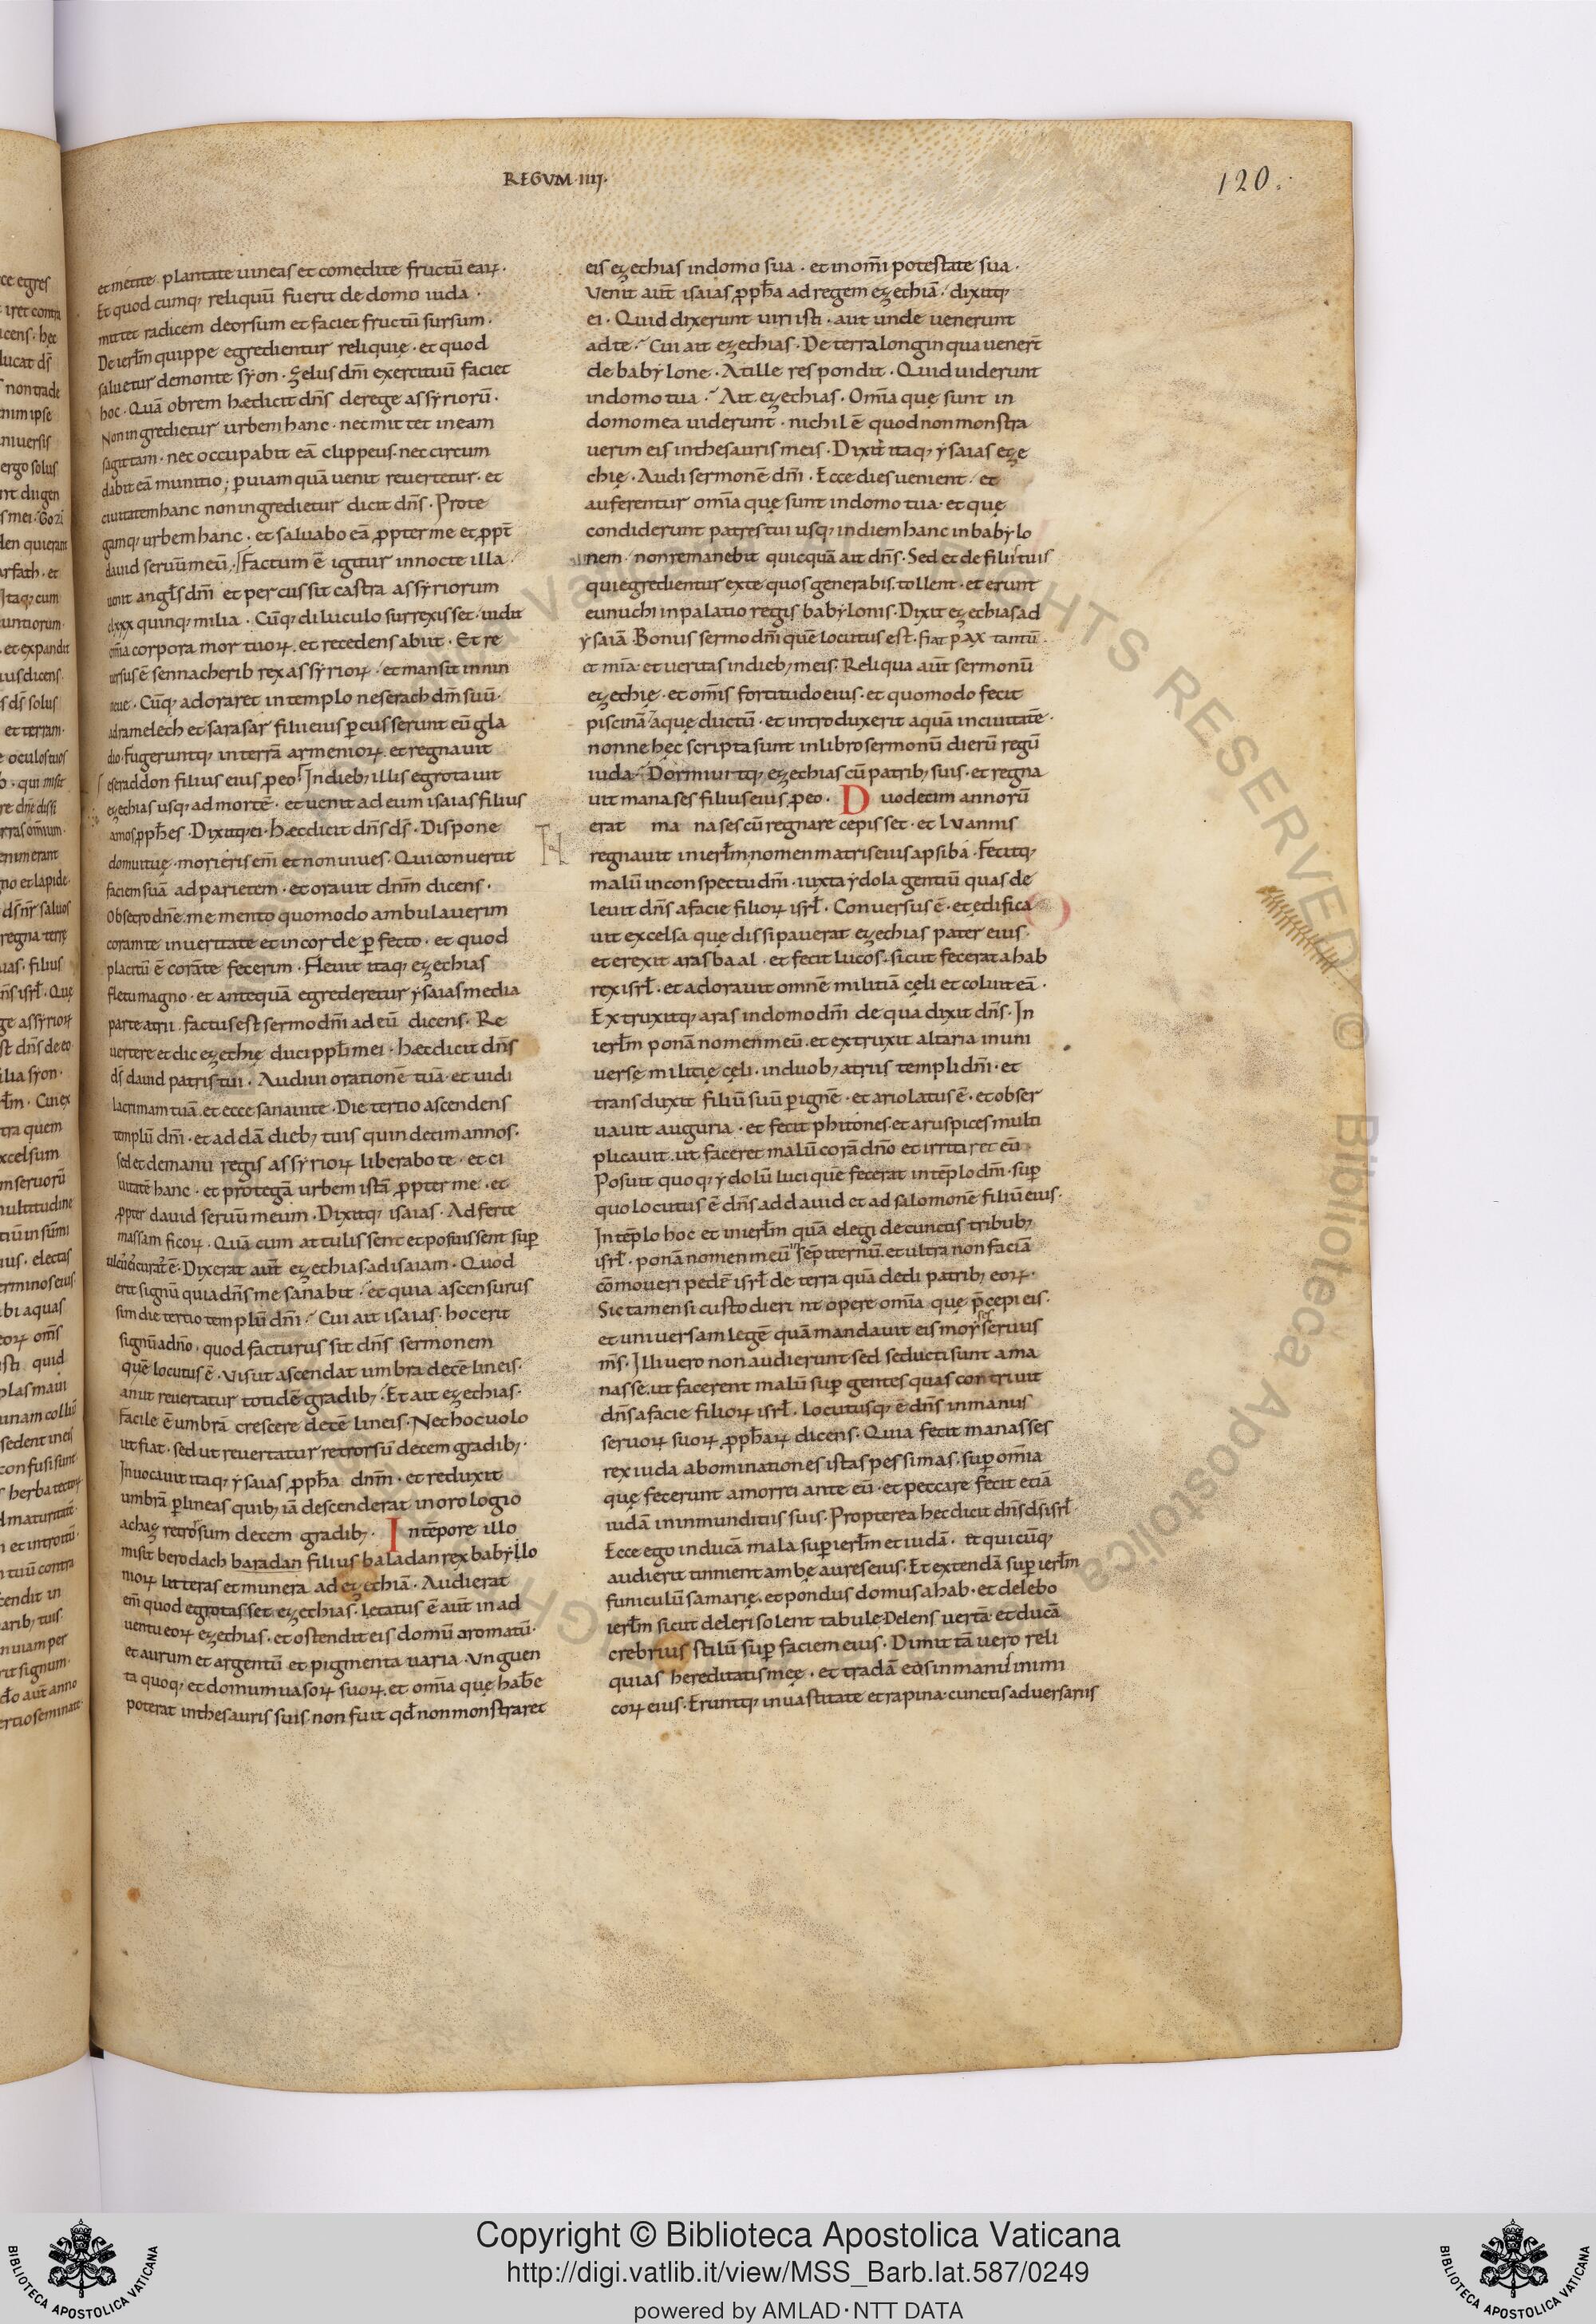 REGVM · IIII ·
120.
et metite · plantate uineas et comedite fructū eaꝝ ·
Et quod cumq; reliquū fuerit de domo iuda ·
mittet radicem deorsum et faciet fructū sursum ·
De ierlm̄ quippe egredientur reliquię · et quod
saluetur demonte syon · Zelus dm̄i exercituū faciet
hoc · Quā obrem hæc dicit dn̄s de rege assyriorū ·
Non ingredietur urbem hanc · nec mittet in eam
sagittam · nec occupabit eā clippeus · nec circum
dabit eā munitio ; ꝑ uiam quā uenit reuertetur · et
ciuitatem hanc non ingredietur dicit dn̄s · Prote
gamq; urbem hanc · et saluabo eā ꝓpter me et ꝓpt̄
dauid seruū meū · Factum ē igitur in nocte illa ·
uenit angl̄s dm̄i et percussit castra assyriorum
clxxx quinq; milia · Cūq; diluculo surrexisset · uidit
om̄ia corpora mortuoꝝ · et recedens abiit · Et re
uersus ē sennacherib rex assyrioꝝ · et mansit in nin
neue · Cūq; adoraret in templo neserach dm̄ suū ·
adramelech et sarasar filii eius ꝑcusserunt eū gla
dio · Fugeruntq; in terrā armenioꝝ · et regnauit
eseraddon filius eius ꝓ eo · In dieb; illis egrotauit
ezechias usq; ad mortē · et uenit ad eum isaias filius
amos ꝓph̄es · Dixitq; ei · Hæc dicit dn̄s ds̄ · Dispone
domui tuę · morieris em̄ et non uiues · Qui conuertit
faciem suā ad parietem · et orauit dnm̄ dicens ·
Obsecro dn̄e · memento quomodo ambulauerim
coram te in ueritate et in corde ꝑfecto · et quod
placitū ē corā te fecerim · Fleuit itaq; ezechias
fletu magno · et antequā egrederetur ysaias media
parte atrii · factus est sermo dm̄i ad eū dicens · Re
uertere et dic ezechię duci ppl̄i mei · Hæc dicit dn̄s
ds̄ dauid patris tui · Audiui orationē tuā · et uidi
lacrimam tuā · et ecce sanaui te · Die tertio ascendens
templū dm̄i · et addā dieb; tuis quindecim annos ·
sed et de manu regis assyrioꝝ liberabo te · et ci
uitatē hanc · et protegā urbem istā ꝓpter me · et
ꝓpter dauid seruū meum · Dixitq; isaias · Adferte
massam ficoꝝ · Quā cum attulissent et posuissent suꝑ
ulcus ei curat̄ ē · Dixerat aut̄ ezechias ad isaiam · Quod
erit signū quia dn̄s me sanabit · et quia ascensurus
sim die tertio templū dm̄i · Cui ait isaias · hoc erit
signū a dn̄o · quod facturus sit dn̄s sermonem
quē locutus ē · Vis ut ascendat umbra decē lineis ·
an ut reuertatur totidē gradib; · Et ait ezechias ·
Facile ē umbrā crescere decē lineis · Nec hoc uolo
ut fiat · sed ut reuertatur retrorsū decem gradib; ·
Inuocauit itaq; ysaias ꝓph̄a dnm̄ · et reduxit
umbrā ꝑ lineas quib; iā descenderat in orologio
achaz retrorsum decem gradib; · In tēpore illo
misit berodach baradan filius baladan rex babyllo
nioꝝ litteras et munera ad ezechiā · Audierat
em̄ quod egrotasset ezechias · Lętatus ē aut̄ in ad
uentu eoꝝ ezechias · et ostendit eis domū aromatū ·
et aurum et argentū et pigmenta uaria · Vnguen
ta quoq; et domum uasoꝝ suoꝝ · et om̄ia que hab̄e
poterat in thesauris suis · non fuit qd̄ non monstraret
eis ezechias in domo sua · et in om̄i potestate sua ·
Venit aut̄ isaias ꝓph̄a ad regem ezechiā · dixitq;
ei · Quid dixerunt uiri isti · aut unde uenerunt
ad te · Cui ait ezechias · De terra longinqua uener̄t
de babylone · At ille respondit · Quid uiderunt
in domo tua · Ait ezechias · Om̄ia quę sunt in
domo mea uiderunt · nichil ē quod non monstra
uerim eis in thesauris meis · Dixit itaq; ysaias eze
chię · Audi sermonē dm̄i · Ecce dies uenient · et
auferentur om̄ia quę sunt in domo tua · et quę
condiderunt patres tui usq; in diem hanc in babylo
nem · non remanebit quicquā ait dn̄s · Sed et de filii tuis
qui egredientur ex te quos generabis · tollent · et erunt
eunuchi in palatio regis babylonis · Dixit ezechias ad
ysaiā · Bonus sermo dm̄i quē locutus est · fiat pax tantū ·
et mīa · et ueritas in dieb; meis · Reliqua aut̄ sermonū
ezechię · et om̄is fortitudo eius · et quomodo fecit
piscinā aquę ductū · et introduxerit aquā in ciuitatē ·
nonne hęc scripta sunt in libro sermonū dierū regū
iuda · Dormiuitq; ezechias cū patrib; suis · et regna
uit manases filius eius ꝓ eo · Duodecim annorū
erat ma nases cū regnare cepisset · et Lv annis
regnauit in ierlm̄ · nomen matris eius apsiba · Fecitq;
malū in conspectu dm̄i · iuxta ydola gentiū quas de
leuit dn̄s a facie filioꝝ isrl̄ · Conuersus ē · et edifica
uit excelsa que dissipauerat ezechias pater eius ·
et erexit aras baal · et fecit lucos · sicut fecerat ahab
rex isrl̄ · et adorauit omnē militiā cęli et coluit eā ·
Extruxitq; aras in domo dm̄i de qua dixit dn̄s · In
ierlm̄ ponā nomen meū · et extruxit altaria uniu
uersę militię cęli · in duob; atriis templi dm̄i · et
transduxit filiū suū ꝑ ignē · et ariolatus ē · et obser
uauit auguria · et fecit phitones · et aruspices multi
plicauit · ut faceret malū corā dn̄o et irritaret eū ·
Posuit quoq; ydolū luci quē fecerat in tēplo dm̄i · suꝑ
quo locutus ē dn̄s ad dauid et ad salomonē filiū eius ·
In tēplo hoc et in ierlm̄ quā elegi de cunctis tribub;
isrl̄ · ponā nomen meū in sēpiternū · et ultra non faciā
cōmoueri pedē isrl̄ de terra quā dedi patrib; eoꝝ ·
Sic tamen si custodierint opere om̄ia quę p̄cepi eis ·
et uniuersam legē quā mandauit eis moyses seruus
m̄s · Illi uero non audierunt · sed seducti sunt a ma
nasse · ut facerent malū suꝑ gentes quas contriuit
dn̄s a facie filioꝝ isrl̄ · Locutusq; ē dn̄s in manus
seruoꝝ suoꝝ ꝓph̄aꝝ dicens · Quia fecit manasses
rex iuda abominationes istas pessimas · suꝑ om̄ia
quę fecerunt amorrei ante eū · et peccare fecit etiā
iudā in inmunditiis suis · Propterea hęc dicit dn̄s ds̄ isrl̄
Ecce ego inducā mala suꝑ ierlm̄ et iudā · et quicūq;
audierit tinnient ambę aures eius · Et extendā suꝑ ierlm̄
funiculū samarię · et pondus domus ahab · et delebo
ierlm̄ sicut deleri solent tabule · Delens uertā · et ducā
crebrius stilū suꝑ faciem eius · Dimittā uero reli
quias hereditatis meę · et tradā eos in manu inimi
coꝝ eius · Eruntq; in uastitate et rapina · cunctis aduersariis
Copyright © Biblioteca Apostolica Vaticana
http://digi.vatlib.it/view/MSS_Barb.lat.587/0249
powered by AMLAD·NTT DATA
BIBLIOTECA APOSTOLICA VATICANA
BIBLIOTECA APOSTOLICA VATICANA